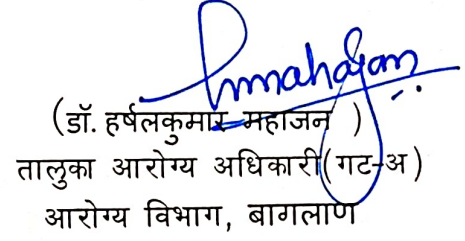 Hmahajan
(डॉ. हर्षलकुमार महाजन )
तालुका आरोग्य अधिकारी(गट-अ)
आरोग्य विभाग, बागलाण